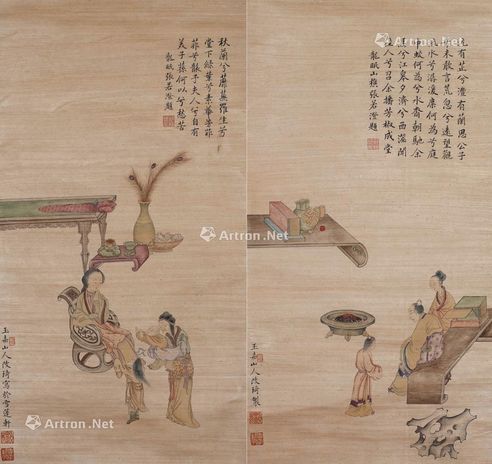 沅有芷兮澧有蘭思公子
兮未敢言荒忽兮遠望觀
流水兮潺湲麋何為兮庭
中蛟何為兮水裔朝馳余
馬兮江皋夕濟兮西澨聞
佳人兮召余播芳椒成堂
龍眠山樵張若澄題
玉壺山人改琦製
秋蘭兮蘼蕪羅生兮
堂下綠葉兮素華芳菲
菲兮襲予夫人兮自有
美子蓀何以兮愁苦
龍眠張若澄題
玉壺山人改琦寫於雪蓮軒
Artron.Net
Artron.Net
Artron.Net
Artron.Net